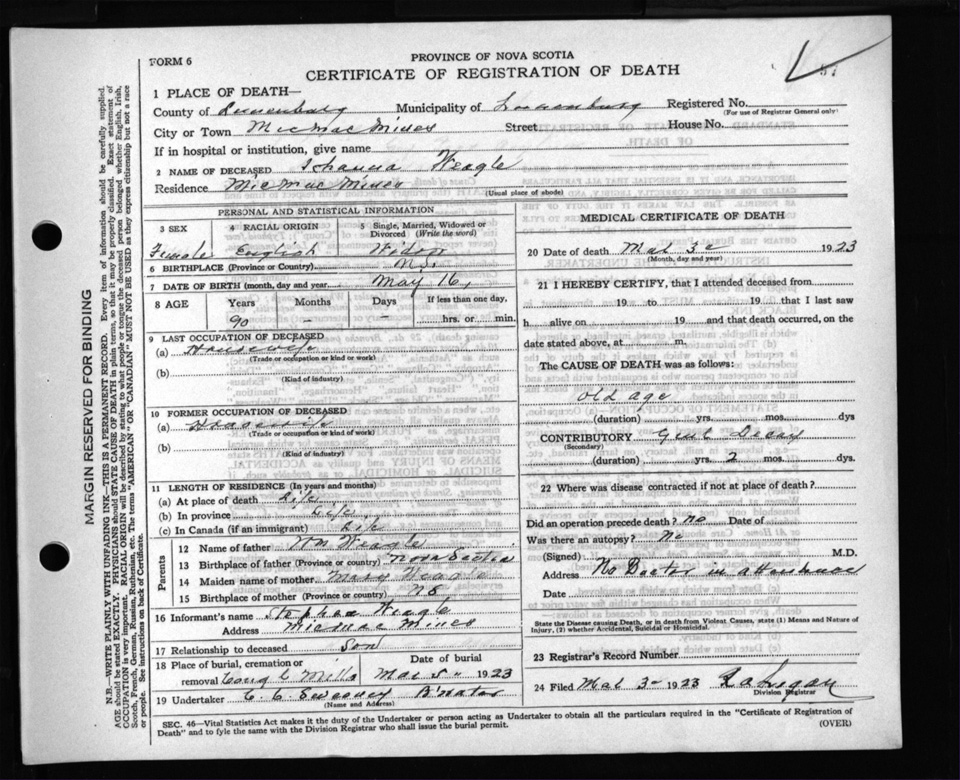 FORM 6
PROVINCE OF NOVA SCOTIA
CERTIFICATE OF REGISTRATION OF DEATH
1 PLACE OF DEATH—
County of Lunenburg Municipality of Lunenburg Registered No.
(For use of Registrar General only)
City or Town Micmac Mines Street House No.
If in hospital or institution, give name
2 NAME OF DECEASED Johanna Weagle
Residence Micmac Mines
(Usual place of abode)
PERSONAL AND STATISTICAL INFORMATION
3 SEX 4 RACIAL ORIGIN 5 Single, Married, Widowed or Divorced (Write the word)
Female English Widow
6 BIRTHPLACE (Province or Country) N.S.
7 DATE OF BIRTH (month, day and year) May 16,
8 AGE Years Months Days If less than one day,
90 – hrs. or min.
9 LAST OCCUPATION OF DECEASED
(a) Housewife
(Trade or occupation or kind of work)
(b)
(Kind of industry)
10 FORMER OCCUPATION OF DECEASED
(a) Housewife
(Trade or occupation or kind of work)
(b)
(Kind of industry)
11 LENGTH OF RESIDENCE (In years and months)
(a) At place of death Life
(b) In province Life
(c) In Canada (if an immigrant) Life
Parents
12 Name of father Wm Weagle
13 Birthplace of father (Province or country) Nova Scotia
14 Maiden name of mother Mary Weagle
15 Birthplace of mother (Province or country) NS
16 Informant's name Stephen Weagle
Address Micmac Mines
17 Relationship to deceased Son
18 Place of burial, cremation or removal Mills Date of burial Mar 5" 1923
19 Undertaker C. C. Sweeney B'water
(Name and Address)
MEDICAL CERTIFICATE OF DEATH
20 Date of death Mar 3rd 1923
(Month, day and year)
21 I HEREBY CERTIFY, that I attended deceased from
19 to 19 that I last saw
h alive on 19 and that death occurred, on the
date stated above, at m.
The CAUSE OF DEATH was as follows:
Old age
(duration) yrs. mos. dys
CONTRIBUTORY Genl Decay
(Secondary)
(duration) yrs. 2 mos. dys
22 Where was disease contracted if not at place of death?
Did an operation precede death? No Date of
Was there an autopsy? No
(Signed) M.D.
Address No Doctor in attendance
Date
State the Disease causing Death, or in death from Violent Causes, state (1) Means and Nature of Injury, (2) whether Accidental, Suicidal or Homicidal.
23 Registrar's Record Number
24 Filed Mar 3 1923
Division Registrar
SEC. 46—Vital Statistics Act makes it the duty of the Undertaker or person acting as Undertaker to obtain all the particulars required in the "Certificate of Registration of
Death" and to fyle the same with the Division Registrar who shall issue the burial permit. (OVER)
MARGIN RESERVED FOR BINDING
N.B.—WRITE PLAINLY WITH UNFADING INK—THIS IS A PERMANENT RECORD. Every item of information should be carefully supplied.
AGE should be stated EXACTLY. PHYSICIANS should STATE CAUSE OF DEATH in plain terms, so that it may be properly classified. Exact statement of
OCCUPATION is very important. RACIAL ORIGIN will be described by stating to what people or tongue the deceased person belonged whether English, Irish,
Scotch, French, German, Russian, Ruthenian, etc. The terms "AMERICAN" or "CANADIAN" MUST NOT BE USED as they express citizenship but not a race
or people. See instructions on back of Certificate.